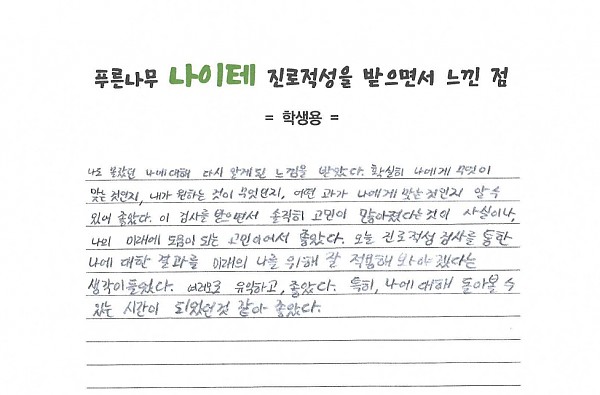 푸른나무 나이테 진로적성을 받으면서 느낀 점
= 학생용 =
나도 몰랐던 나에 대해 다시 알게된 느낌을 받았다. 확실히 나에게 무엇이
맞는 것인지, 내가 원하는 것이 무엇인지, 어떤 과가 나에게 맞는 것인지 알 수
있어 좋았다. 이 검사를 받으면서 솔직히 고민이 많아졌다는 것이 사실이나,
나의 미래에 도움이 되는 고민이어서 좋았다. 오늘 진로적성 검사를 통한
나에 대한 결과를 미래의 나를 위해 잘 적용해 봐야겠다는
생각이 들었다. 여러모로 유익하고, 좋았다. 특히, 나에 대해 돌아볼 수
있는 시간이 되었던 것 같아 좋았다.